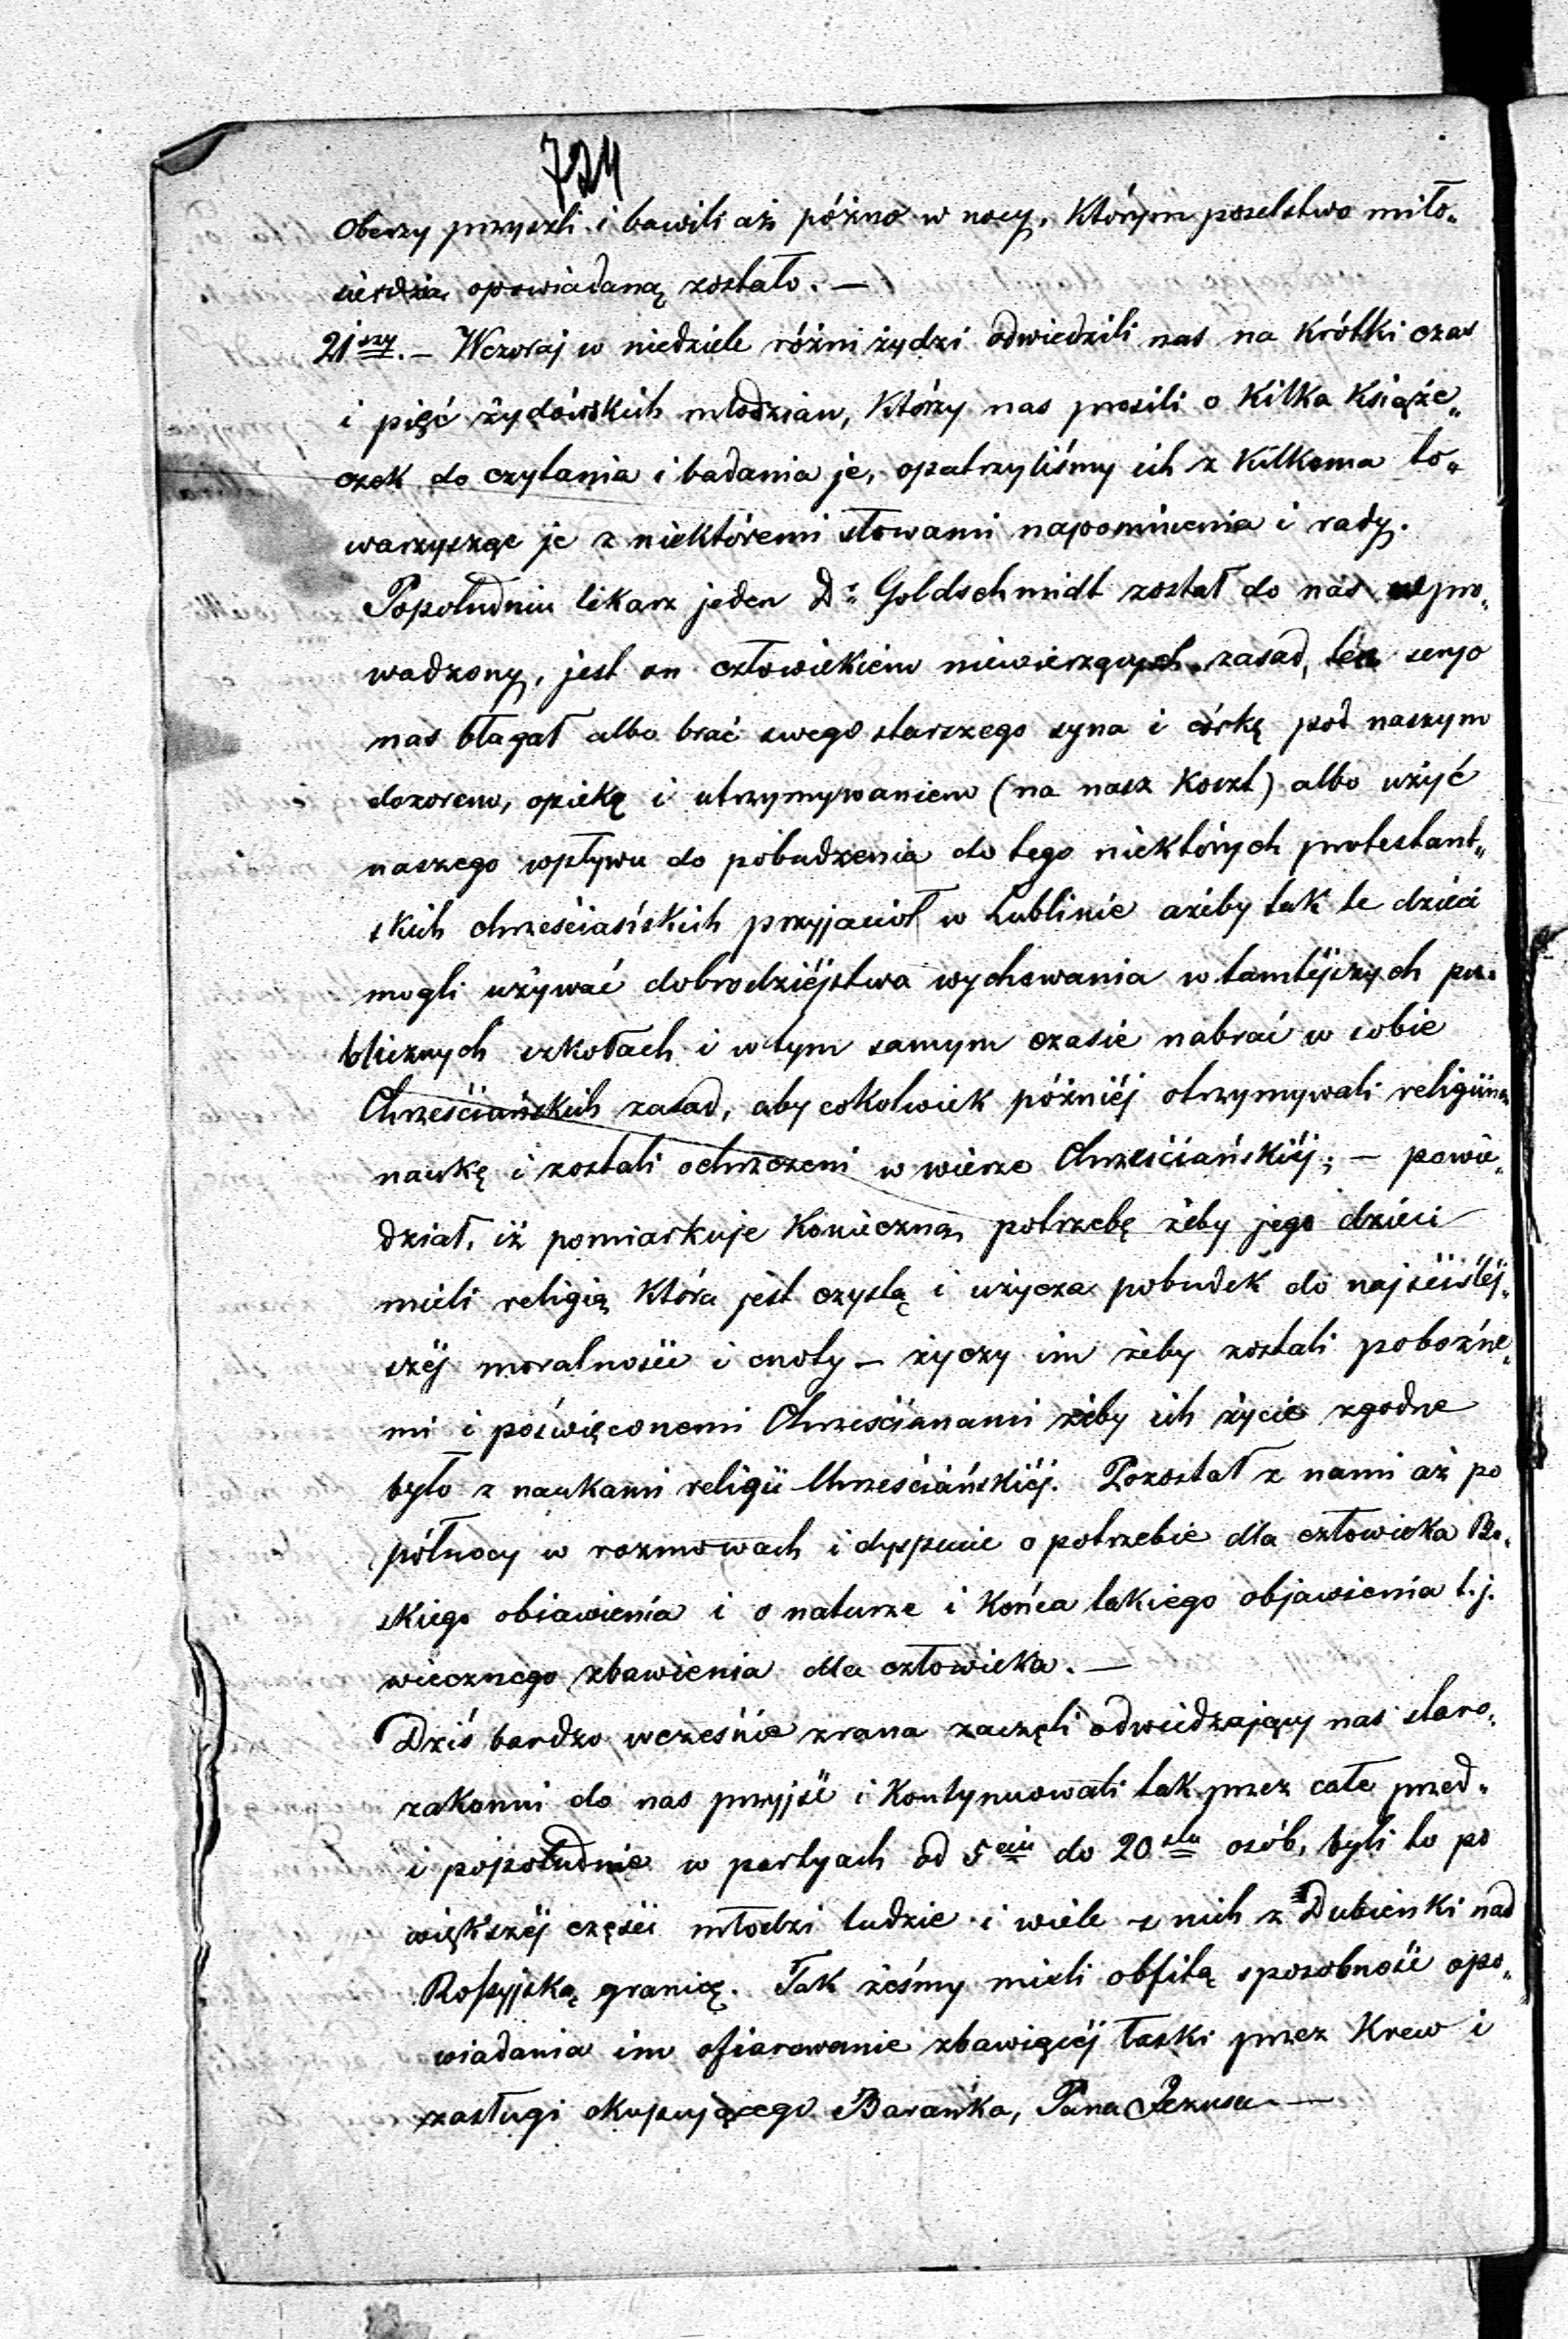 724
oberzy przyszli i bawili aż późno w nocy, którym poselstwo miło„
sierdzia opowiadaną zostało. —
21szy. — Wczoraj w niedziele różni żydzi odwiedzili nas na krótki czas
i pięć żydówskich młodzian, którzy nas prosili o kilka książe„
czek do czytania i badania je, opatrzyliśmy ich z kilkoma to„
warzysząc je z niektóremi słowami napomnienia i rady.
Popołudniu lekarz jeden Dr Goldschmidt został do nas wpro„
wadzony, jest on człowiekiem niewierzących zasad, ten seryo
nas błagał albo brać swego starszego syna i córkę pod naszym
dozorem, opieką i utrzymywaniem (na nasz koszt) albo użyć
naszego wpływu do pobudzenia do tego niektórych protestant„
skich chrześciańskich przyjaciół w Lublinie ażeby tak te dzieci
mogli używać dobrodziéjstwa wychowania w tamtéjszych pu„
blicznych szkołach i w tym samym czasie nabrać w sobie
Chrześciańskich zasad, aby cokolwiek późniéj otrzymywali religiiną
naukę i zostali ochrzczeni w wierze Chrześciańskiéj; — powie„
dział, iż pomiarkuje konieczną potrzebę żeby jego dzieci
mieli religią która jest czystą i użycza pobudek do najściśléj„
széj moralności i cnoty — życzy im żeby zostali pobożne„
mi i poświęconemi Chrześcianami żeby ich życie zgodne
było z naukami religii Chrześciańskiéj. Pozostał z nami aż po
północy w rozmowach i dyspucie o potrzebie dla człowieka Bo„
skiego obiawienia i o naturze i końca takiego objawienia t.j.
wiecznego zbawienia dla człowieka. —
Dziś bardzo wcześnie zrana zaczęli odwiedzający nas staro„
zakonni do nas przyjść i kontynuowali tak przez całe przed„
i popołudnie w partyach od 5ciu do 20stu osób, byli to po
większéj części młodzi ludzie i wiele z nich z Dubienki nad
Rossyjską granicę. Tak żeśmy mieli obfitą sposobność opo„
wiadania im ofiarowanie zbawiącéj łaski przez krew i
zasługi okupującego Baranka, Pana Jezusa. —